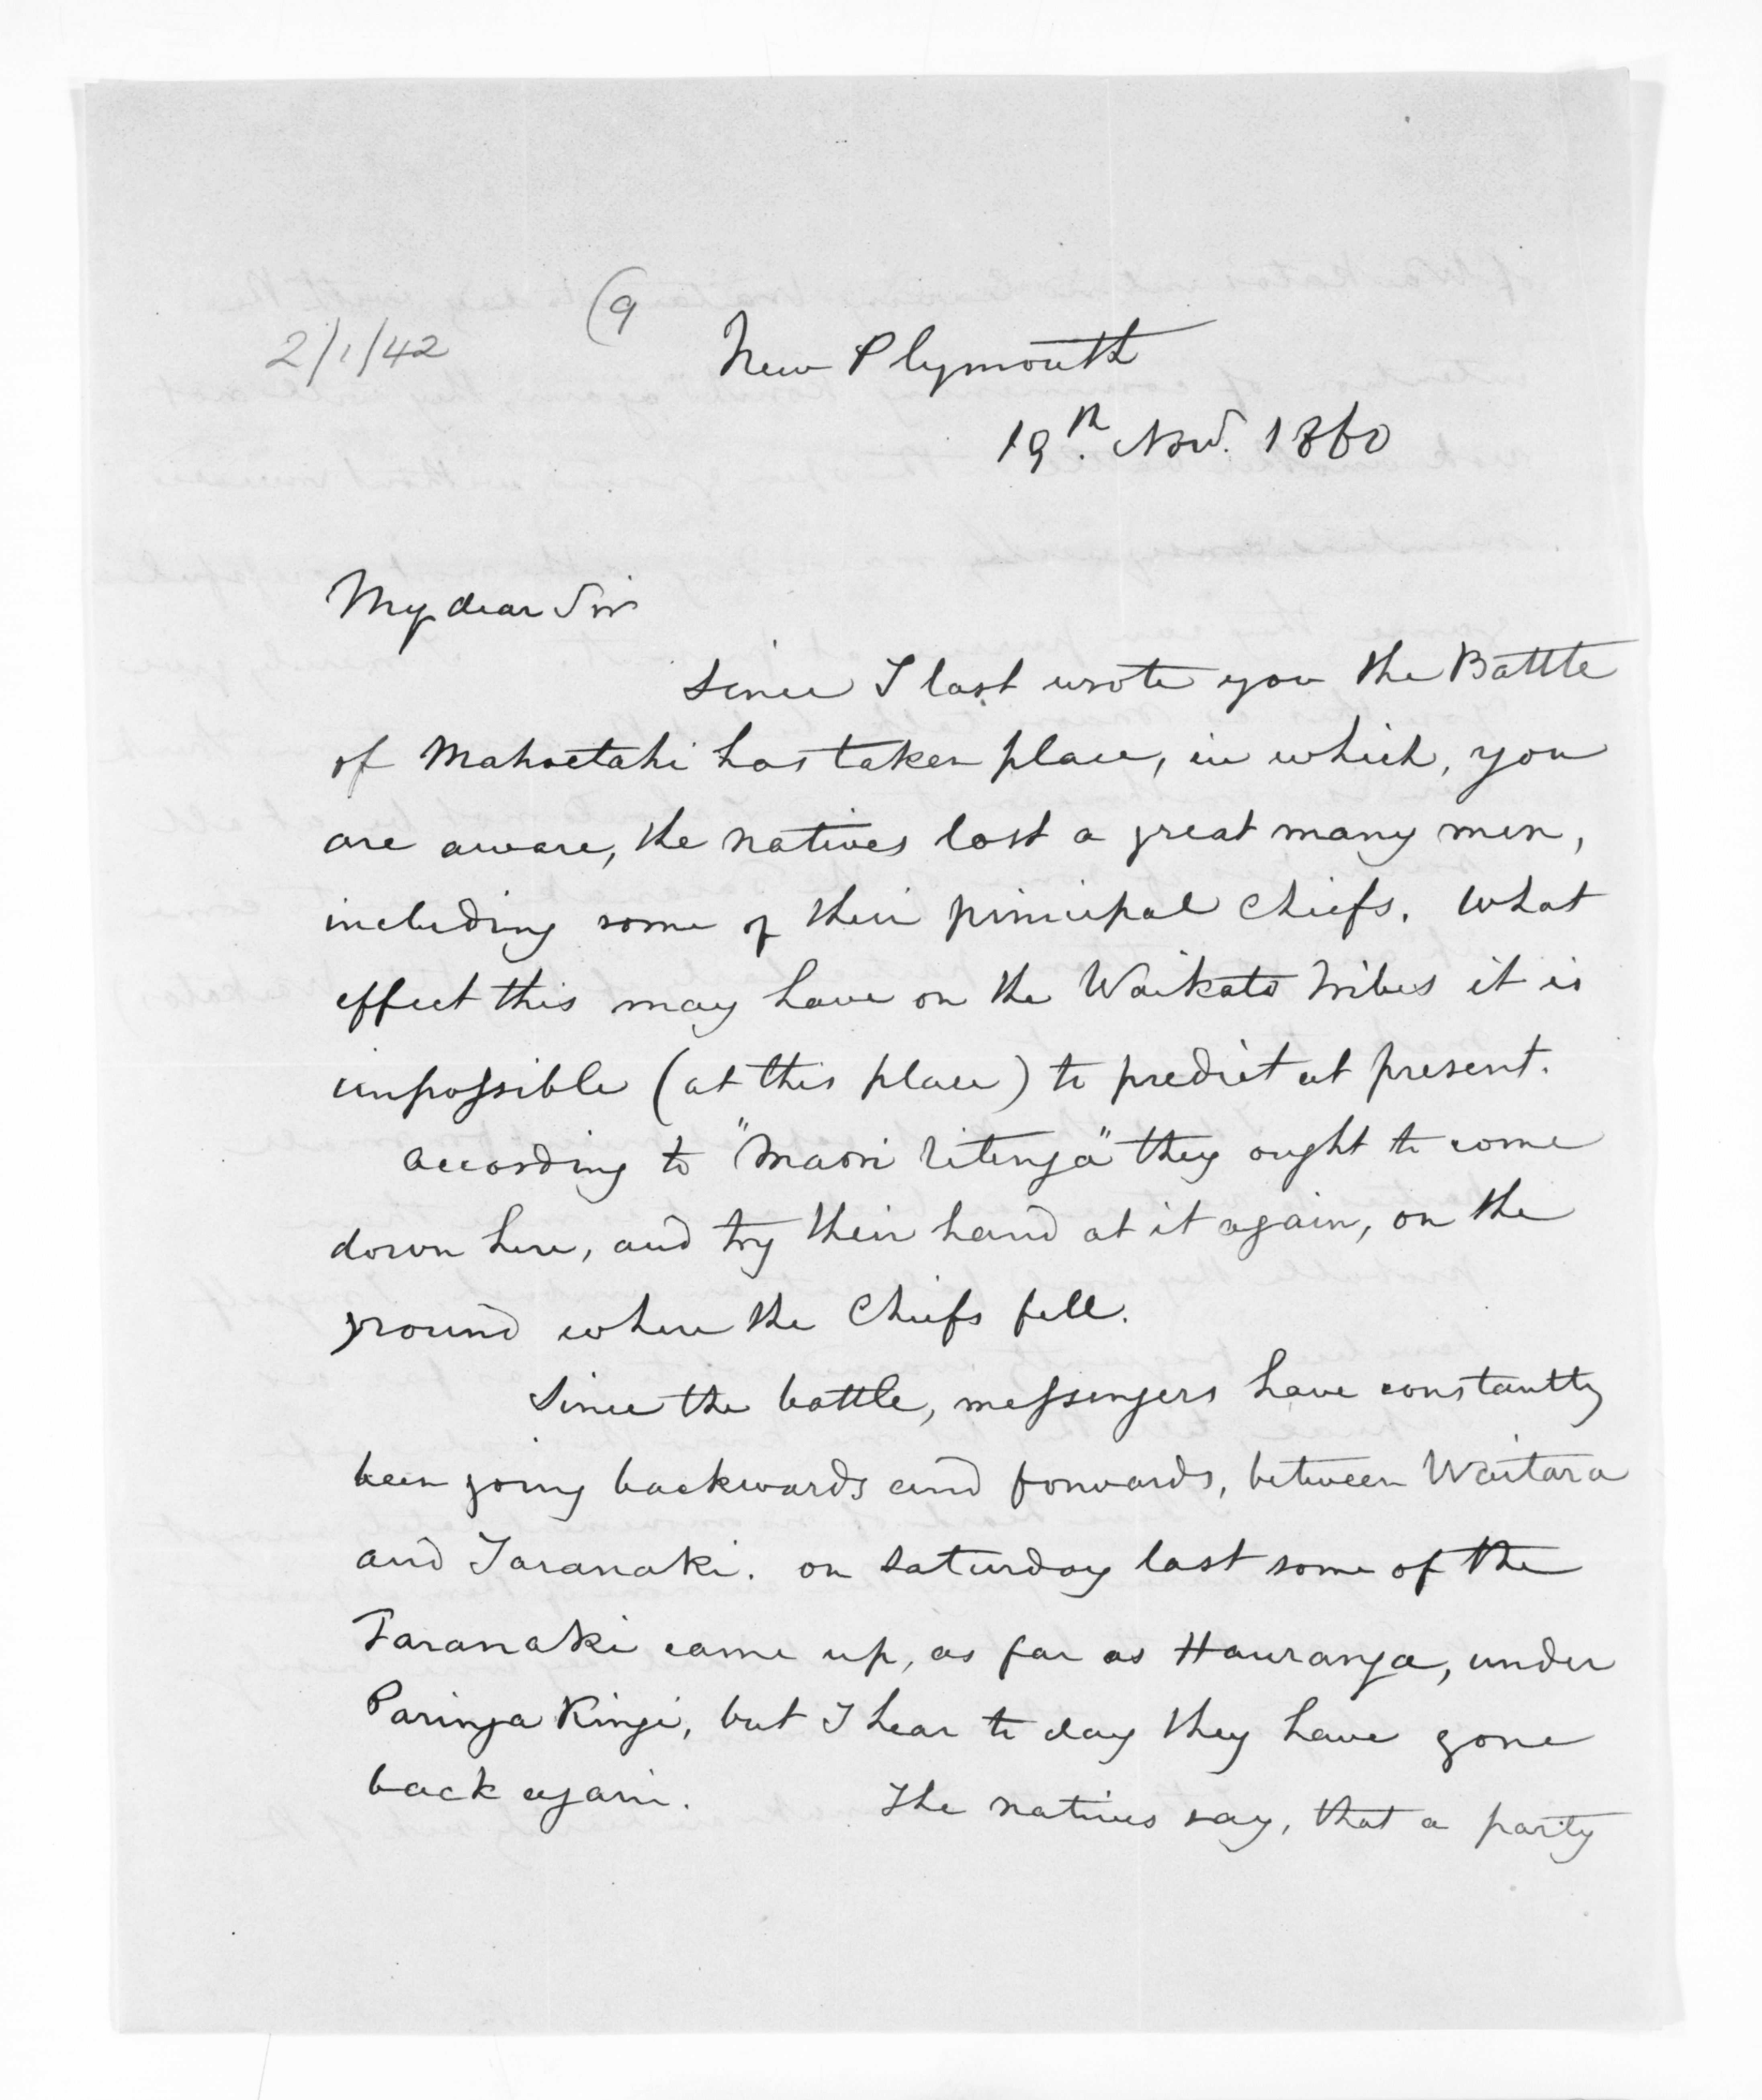 (9
2/1/42
New Plymouth
19th. Nov. 1860
My dear Sir
Since I last wrote you the Battle
of Mahoetahi has taken place, in which, you
are aware, the natives lost a great many men,
including some of their principal Chiefs. What
effect this may have on the Waikato tribes it is
impossible (at this place) to predict at present.
According to "Maori ritenga" they ought to come
down here, and try their hand at it again, on the
ground where the Chiefs fell.
Since the battle, messengers have constantly
been going backwards and forwards, between Waitara
and Taranaki. on Saturday last some of the
Taranaki came up, as far as Hauranga, under
Paringa Kingi, but I hear to day they have gone
back again. The natives say, that a party